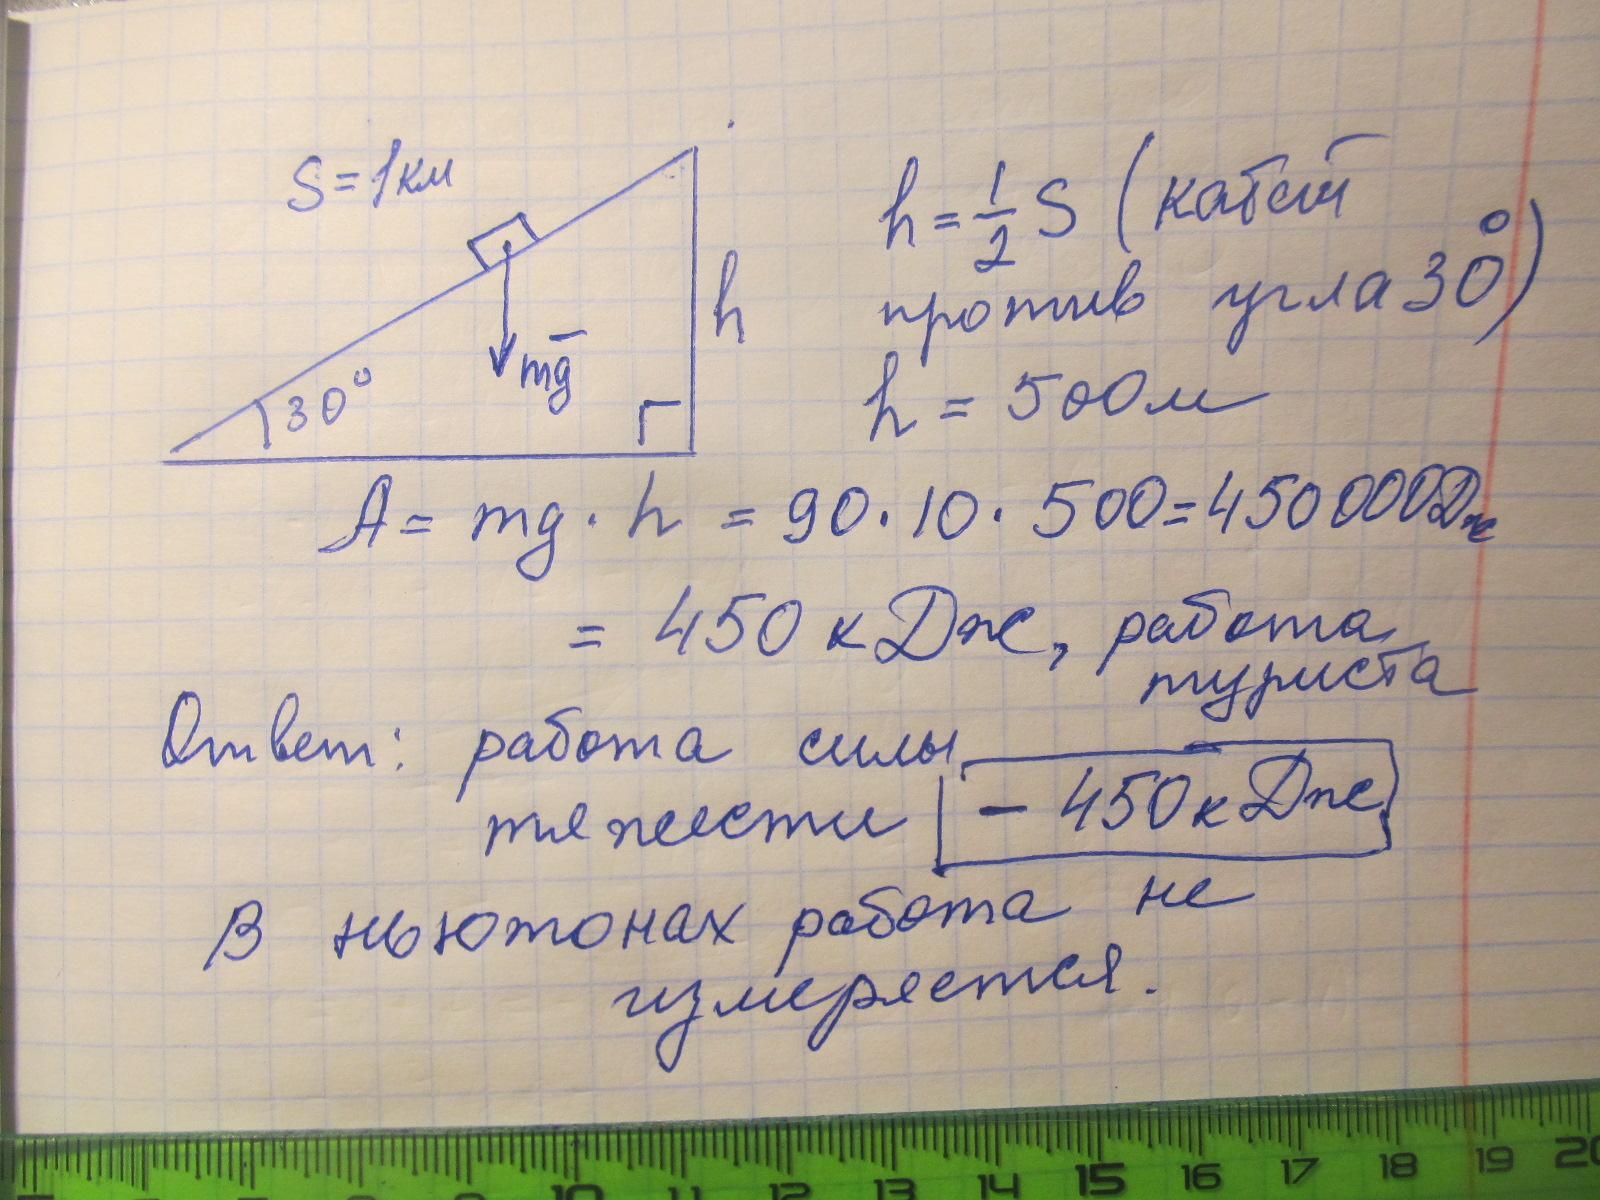 S = 1км
h = 1/2 S (катет
против угла 30°)
h
30°
mg
h = 500м
A = mg · h = 90 · 10 · 500 = 450 000 Дж
= 450 кДж, работа
туриста
Ответ: работа силы
тяжести - 450 кДж
В ньютонах работа не
измеряется.
10 11 12 13 14 15 16 17 18 19 20